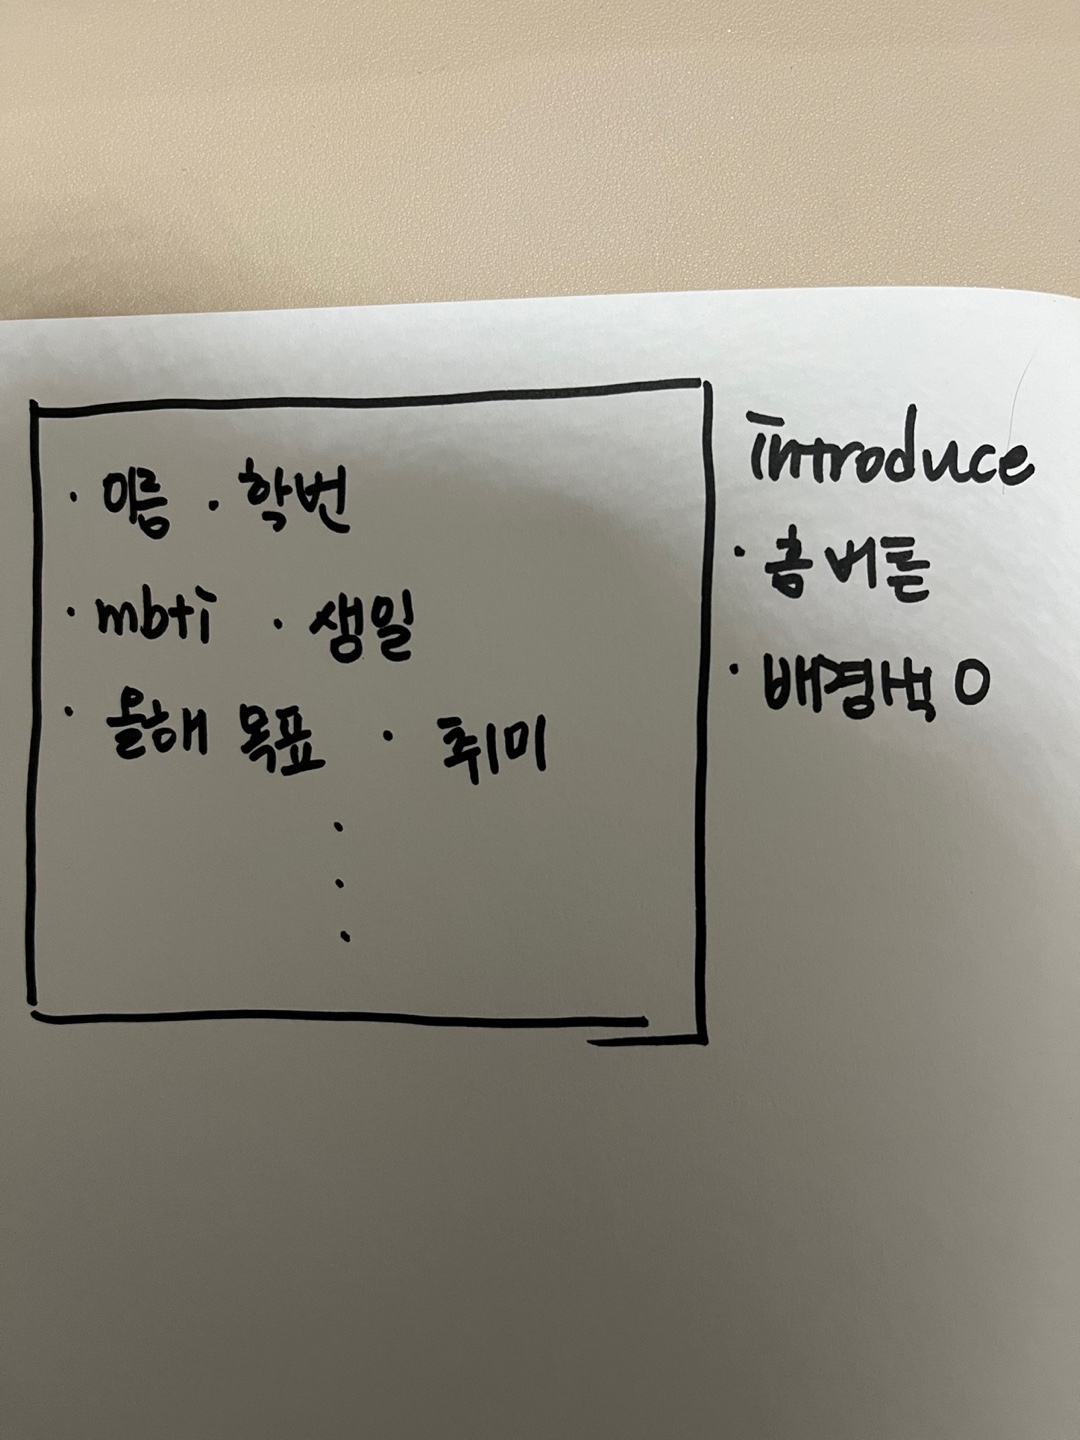 · 이름 · 학번
· mbti · 생일
· 올해 목표 · 취미
·
·
·
introduce
· 홈 버튼
· 배경색 O